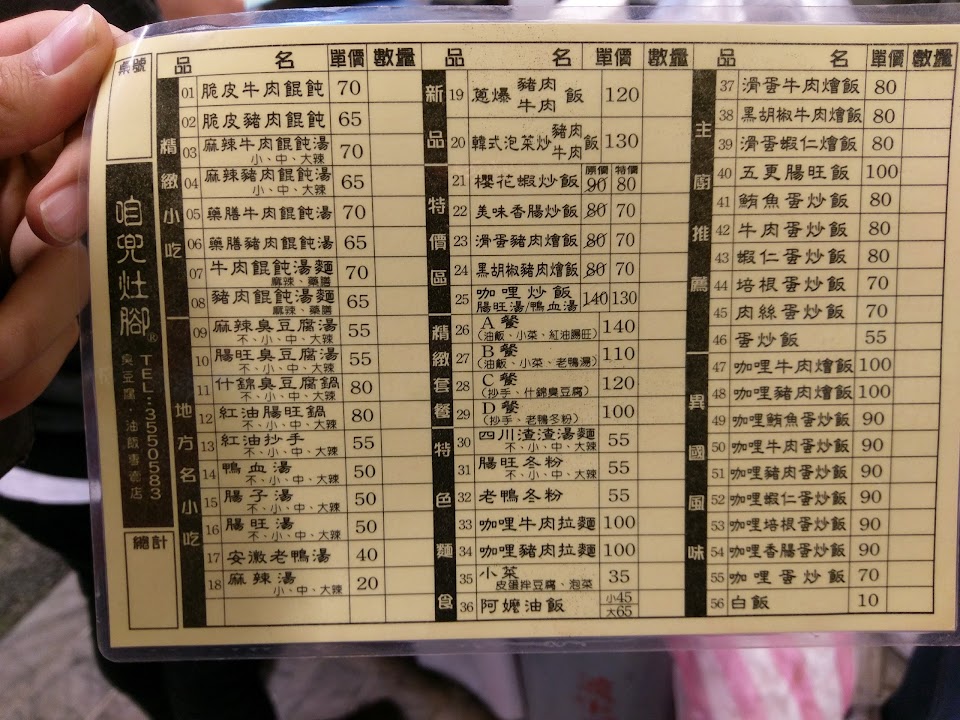 桌號
咱兜灶腳®
臭豆腐・油飯專賣店
TEL:3550583
總計
品 名 單價 數量
精緻小吃
01 脆皮牛肉餛飩 70
02 脆皮豬肉餛飩 65
03 麻辣牛肉餛飩湯 70
小、中、大辣
04 麻辣豬肉餛飩湯 65
小、中、大辣
05 藥膳牛肉餛飩湯 70
06 藥膳豬肉餛飩湯 65
07 牛肉餛飩湯麵 70
麻辣、藥膳
08 豬肉餛飩湯麵 65
麻辣、藥膳
地方名小吃
09 麻辣臭豆腐湯 55
不、小、中、大辣
10 腸旺臭豆腐湯 55
不、小、中、大辣
11 什錦臭豆腐鍋 80
不、小、中、大辣
12 紅油腸旺鍋 80
不、小、中、大辣
13 紅油抄手 55
不、小、中、大辣
14 鴨血湯 50
不、小、中、大辣
15 腸子湯 50
不、小、中、大辣
16 腸旺湯 50
不、小、中、大辣
17 安徽老鴨湯 40
18 麻辣湯 20
小、中、大辣
品 名 單價 數量
新品
19 蔥爆 豬肉 牛肉 飯 120
20 韓式泡菜炒 豬肉 牛肉 飯 130
特價區
原價 特價
21 櫻花蝦炒飯 90 80
22 美味香腸炒飯 80 70
23 滑蛋豬肉燴飯 80 70
24 黑胡椒豬肉燴飯 80 70
25 咖哩炒飯 140 130
腸旺湯/鴨血湯
精緻套餐
26 A餐 140
(油飯、小菜、紅油腸旺)
27 B餐 110
(油飯、小菜、老鴨湯)
28 C餐 120
(抄手、什錦臭豆腐)
29 D餐 100
(抄手、老鴨冬粉)
特色麵食
30 四川渣渣湯麵 55
不、小、中、大辣
31 腸旺冬粉 55
不、小、中、大辣
32 老鴨冬粉 55
33 咖哩牛肉拉麵 100
34 咖哩豬肉拉麵 100
35 小菜 35
皮蛋拌豆腐、泡菜
36 阿嬤油飯 小45
大65
品 名 單價 數量
主廚推薦
37 滑蛋牛肉燴飯 80
38 黑胡椒牛肉燴飯 80
39 滑蛋蝦仁燴飯 80
40 五更腸旺飯 100
41 鮪魚蛋炒飯 80
42 牛肉蛋炒飯 80
43 蝦仁蛋炒飯 80
44 培根蛋炒飯 70
45 肉絲蛋炒飯 70
46 蛋炒飯 55
異國風味
47 咖哩牛肉燴飯 100
48 咖哩豬肉燴飯 100
49 咖哩鮪魚蛋炒飯 90
50 咖哩牛肉蛋炒飯 90
51 咖哩豬肉蛋炒飯 90
52 咖哩蝦仁蛋炒飯 90
53 咖哩培根蛋炒飯 90
54 咖哩香腸蛋炒飯 90
55 咖哩蛋炒飯 70
56 白飯 10